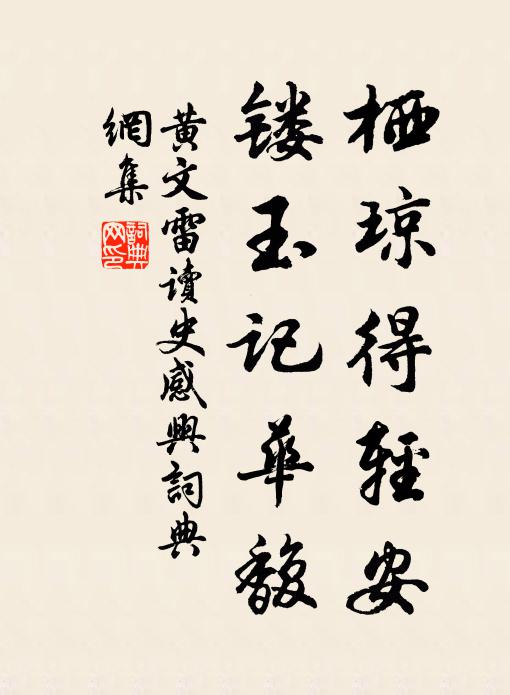 栖琼得輕安
镂玉记華馥
黄文雷讀史感興詞典
網集
詞典网印